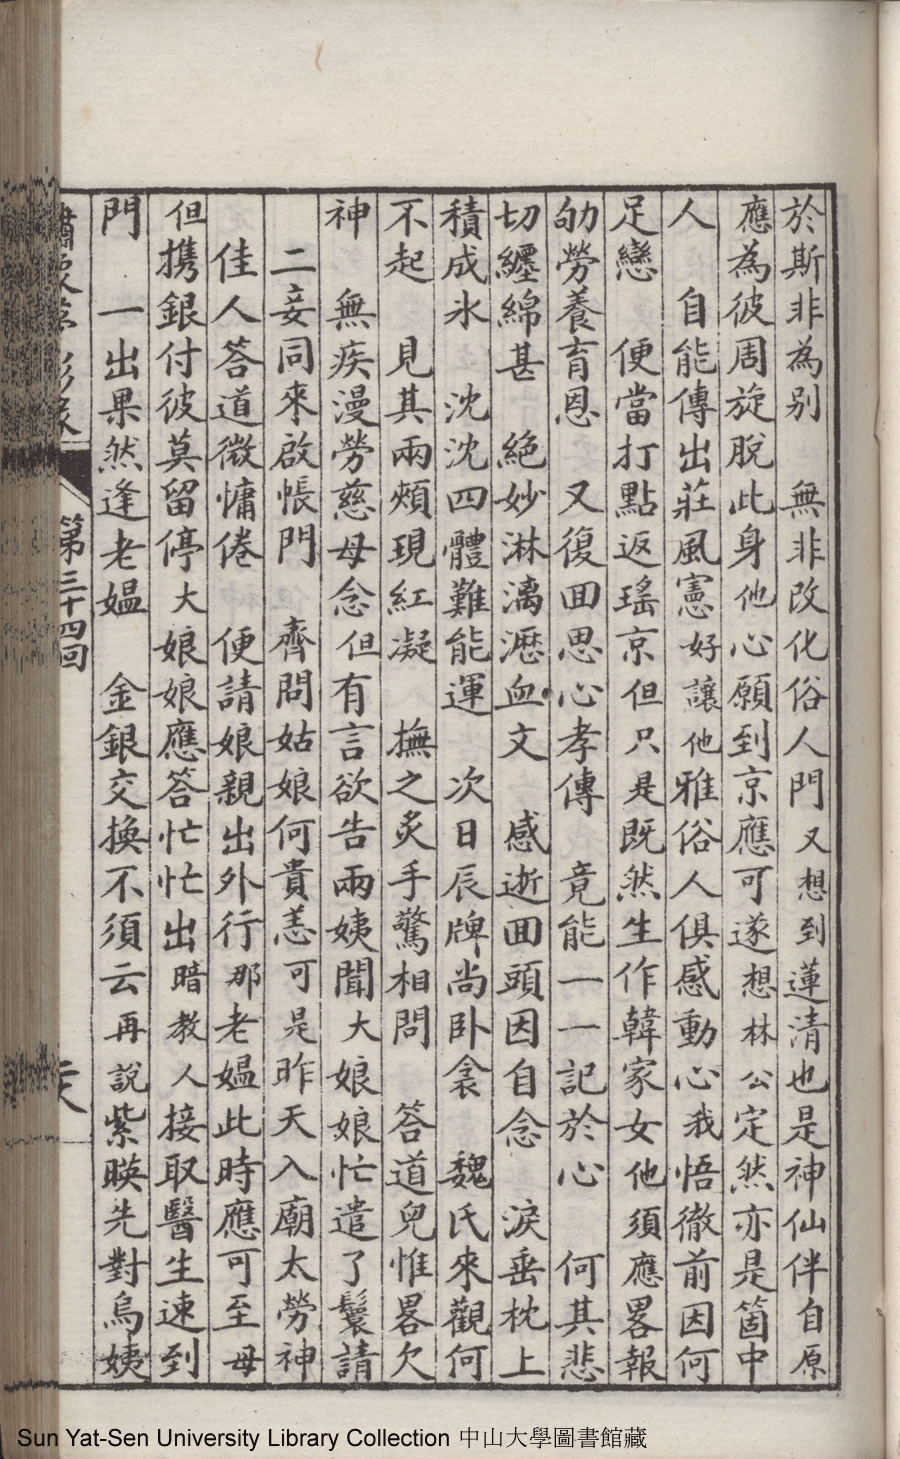 於斯非為别　無非改化俗人門又想到蓮清也是神仙伴自原
應為彼周旋脫此身他心願到京應可遂想林公定然亦是箇中
人　自能傳出莊風憲好讓他雅俗人俱感動心我悟徹前因何
足戀　便當打點返瑤京但只是既然生作韓家女他須應畧報
劬勞養育恩　又復囬思心孝傳　竟能一一記於心　何其悲
切纏綿甚　絕妙淋漓瀝血文　感逝囬頭因自念　淚垂枕上
積成氷　沈沈四體難能運　次日辰牌尚卧衾　魏氏來觀何
不起　見其兩頰現紅凝　撫之炙手驚相問　答道兒惟畧欠
神　無疾漫勞慈母念但有言欲告兩姨聞大娘娘忙遣了鬟請
二妾同來啟帳門　齊問姑娘何貴恙可是昨天入廟太勞神
佳人答道微慵倦　便請娘親出外行那老媪此時應可至母
但携銀付彼莫留停大娘娘應答忙忙出暗教人接取醫生速到
門　一出果然逢老媪　金銀交換不須云再說紫暎先對烏姨
第三十四回
Sun Yat-Sen University Library Collection 中山大學圖書館藏